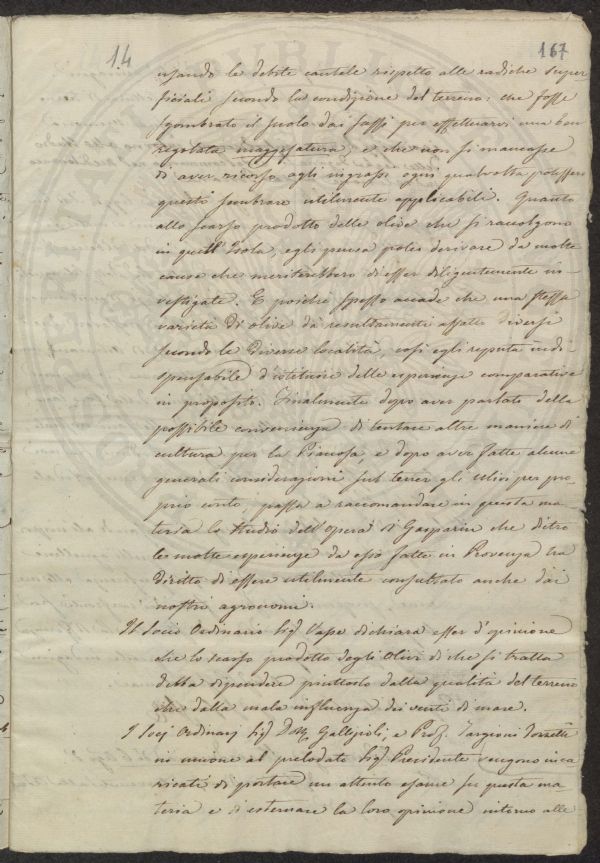 14
167
usando le debite cautele rispetto alle radiche super
ficiali secondo la condizione del terreno: che fosse
sgombrato il suolo dai sassi per effettuarvi una ben
regolata maggesatura, e che non si mancasse
di aver ricorso agli ingrassi ogni qual volta potessero
questi sembrare utilmente applicabili. Quanto
allo scarso prodotto delle olive che si raccolgono
in quell'Isola, egli pensa poter derivare da molte
cause che meriterebbero di esser diligentemente in
vestigate. E poichè spesso accade che una stessa
varietà di olive dà resultamenti affatto diversi
secondo le diverse località, così egli reputa indi
spensabile d'istituire delle esperienze comparative
in proposito. Finalmente dopo aver parlato della
possibile convenienza di tentare altre maniere di
cultura per la Pianosa, e dopo aver fatte alcune
generali considerazioni sul tener gli Ulivi per pro
prio conto, passa a raccomandare in questa ma
teria lo studio dell'opera di Gasparin che dietro
le molte esperienze da esso fatte in Provenza ha
diritto di essere utilmente consultato anche dai
nostri agronomi.
Il Socio Ordinario Sig. Vase dichiara esser d'opinione
che lo scarso prodotto degli Olivi di che si tratta
debba dipendere piuttosto dalla qualità del terreno
che dalla mala influenza dei venti di mare.
I Socj Ordinarj Sig. Dott. Gallizioli, e Prof. Targioni Tozzetti
in unione al prelodato Sig. Presidente vengono inca
ricati di portare un attento esame su questa ma
teria e di esternare la loro opinione intorno alle